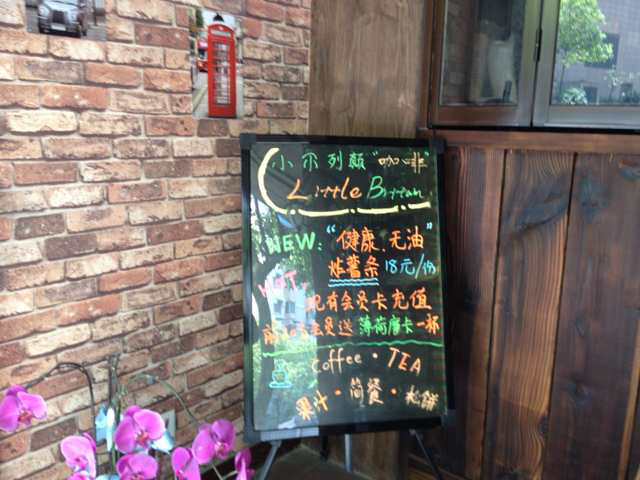 小尔列颠"咖啡"
Little Brittan
NEW:"健康,无油"
炸薯条 18元/份
HOT. 现有会员卡充值
送薄荷摩卡一杯
Coffee·TEA
果汁·简餐·松饼